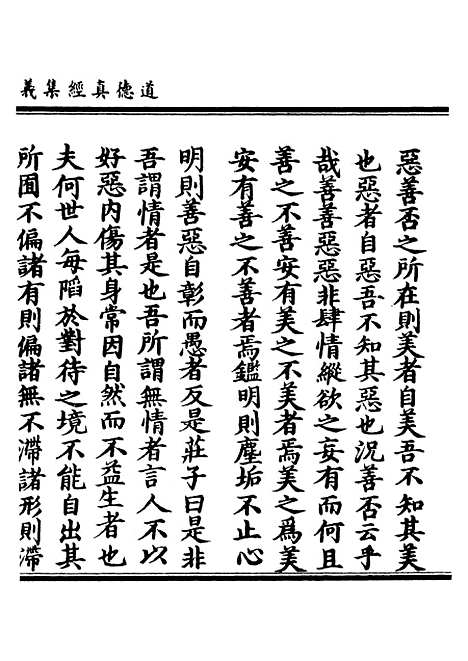 道德真經集義
惡善否之所在則美者自美吾不知其美
也惡者自惡吾不知其惡也況善否云乎
哉善善惡惡非肆情縱欲之妄有而何且
善之不善安有美之不美者焉美之爲美
安有善之不善者焉鑑明則塵垢不止心
明則善惡自彰而愚者反是莊子曰是非
吾謂情者是也吾所謂無情者言人不以
好惡內傷其身常因自然而不益生者也
夫何世人每䧟於對待之境不能自出其
所囿不偏諸有則偏諸無不滯諸形則滯